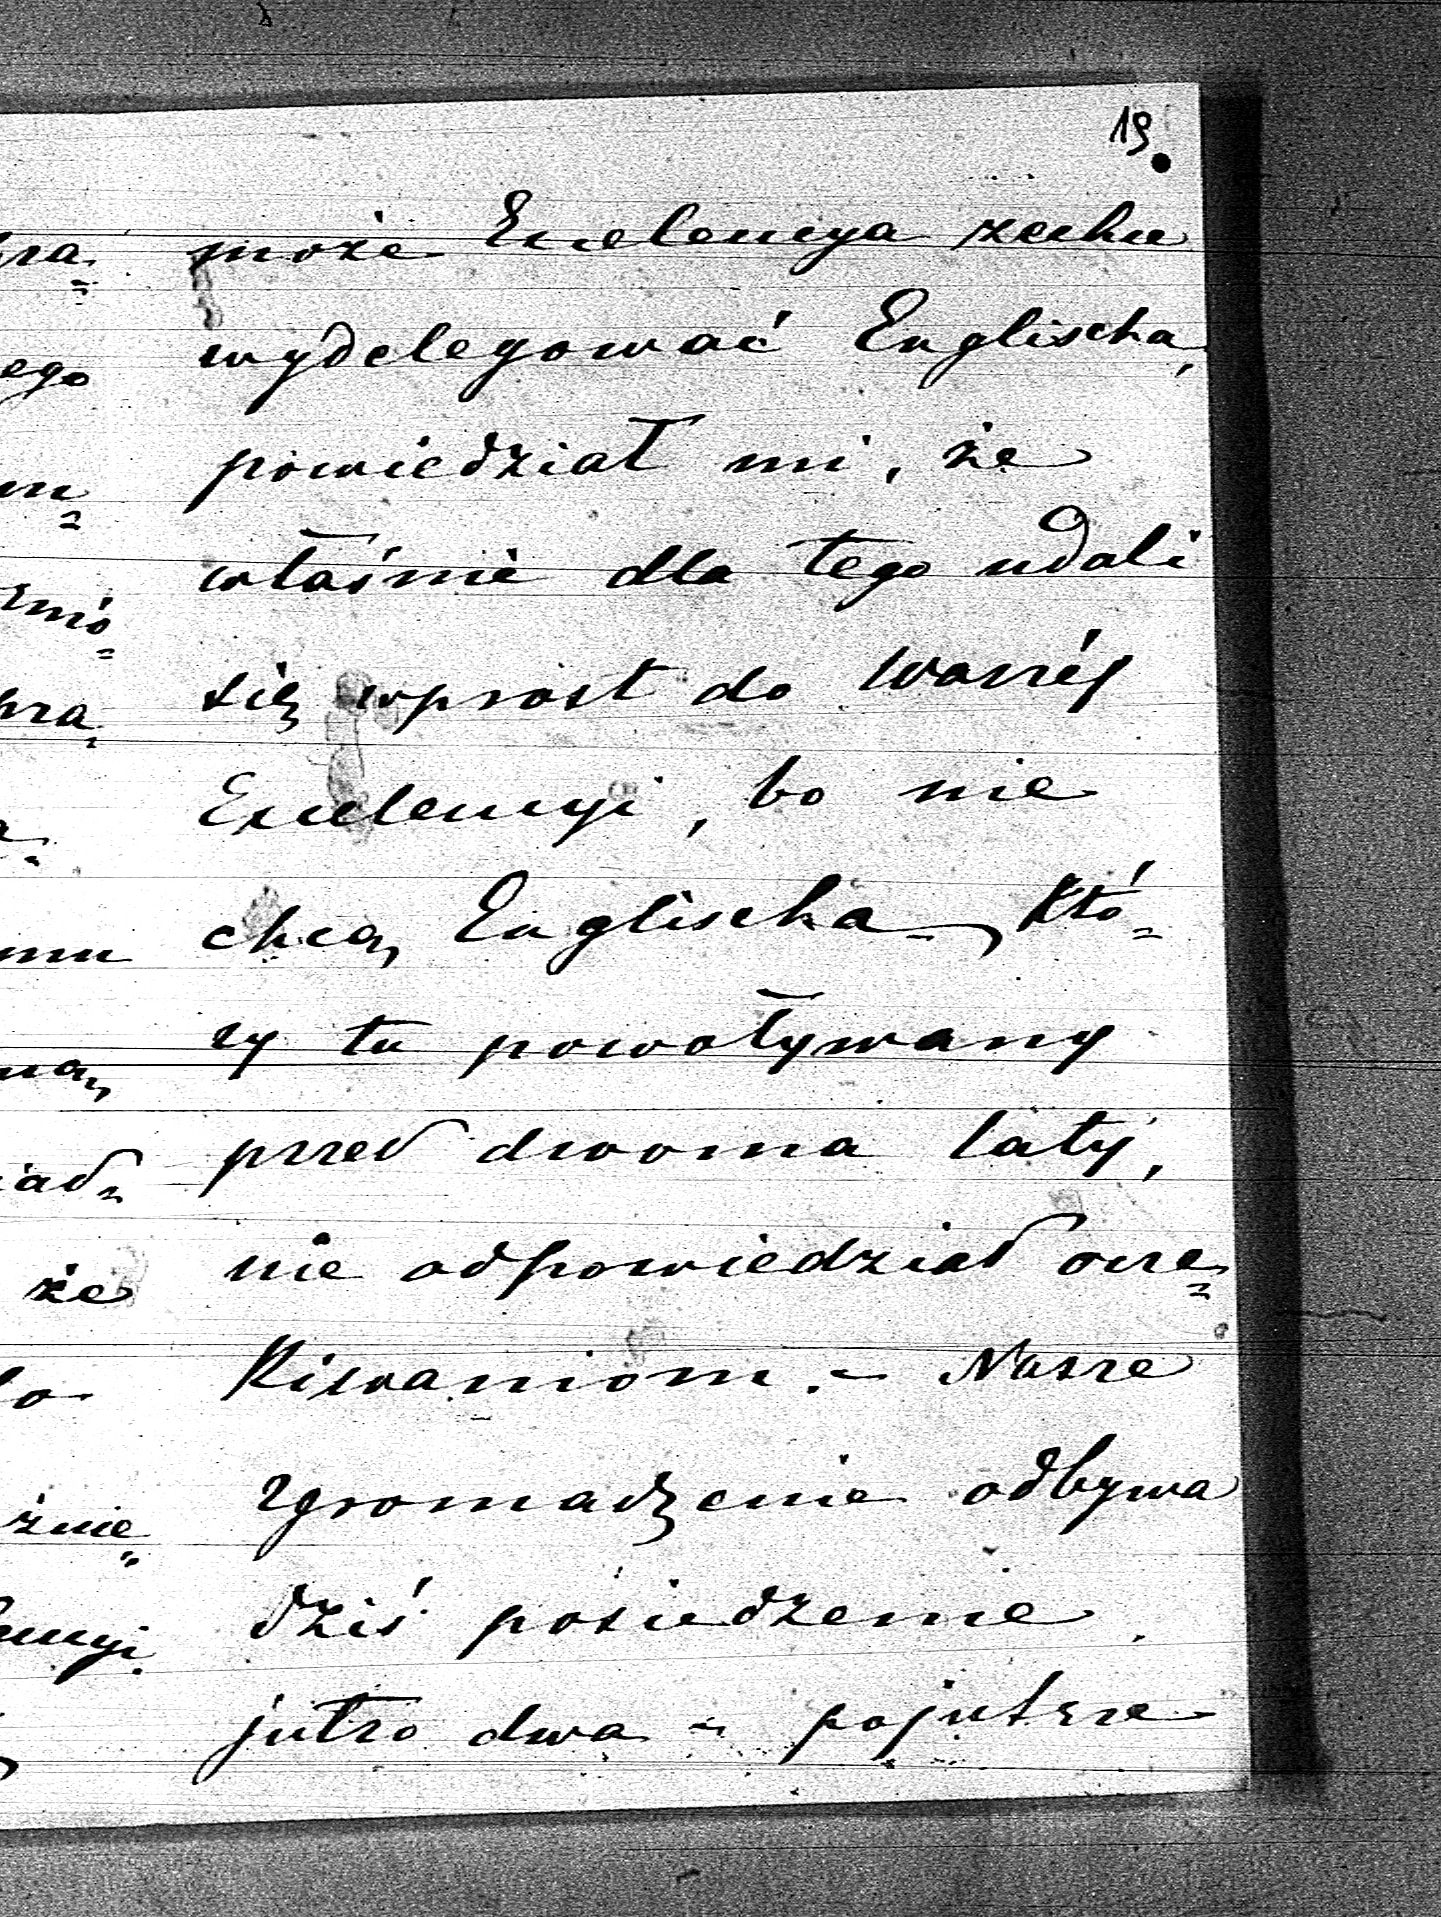 19.
może Excelencya zechce
wydelegować Englischa,
powiedział mi, że
właśnie dla tego udali
się wprost do Waszéj
Excelencyi, bo nie
chcą Englischa, któ=
ry tu powoływany
przed dwoma laty,
nie odpowiedział ocze=
kiwaniom. – Nasze
zgromadzenie odbywa
dziś posiedzenie,
jutro dwa – pojutrze